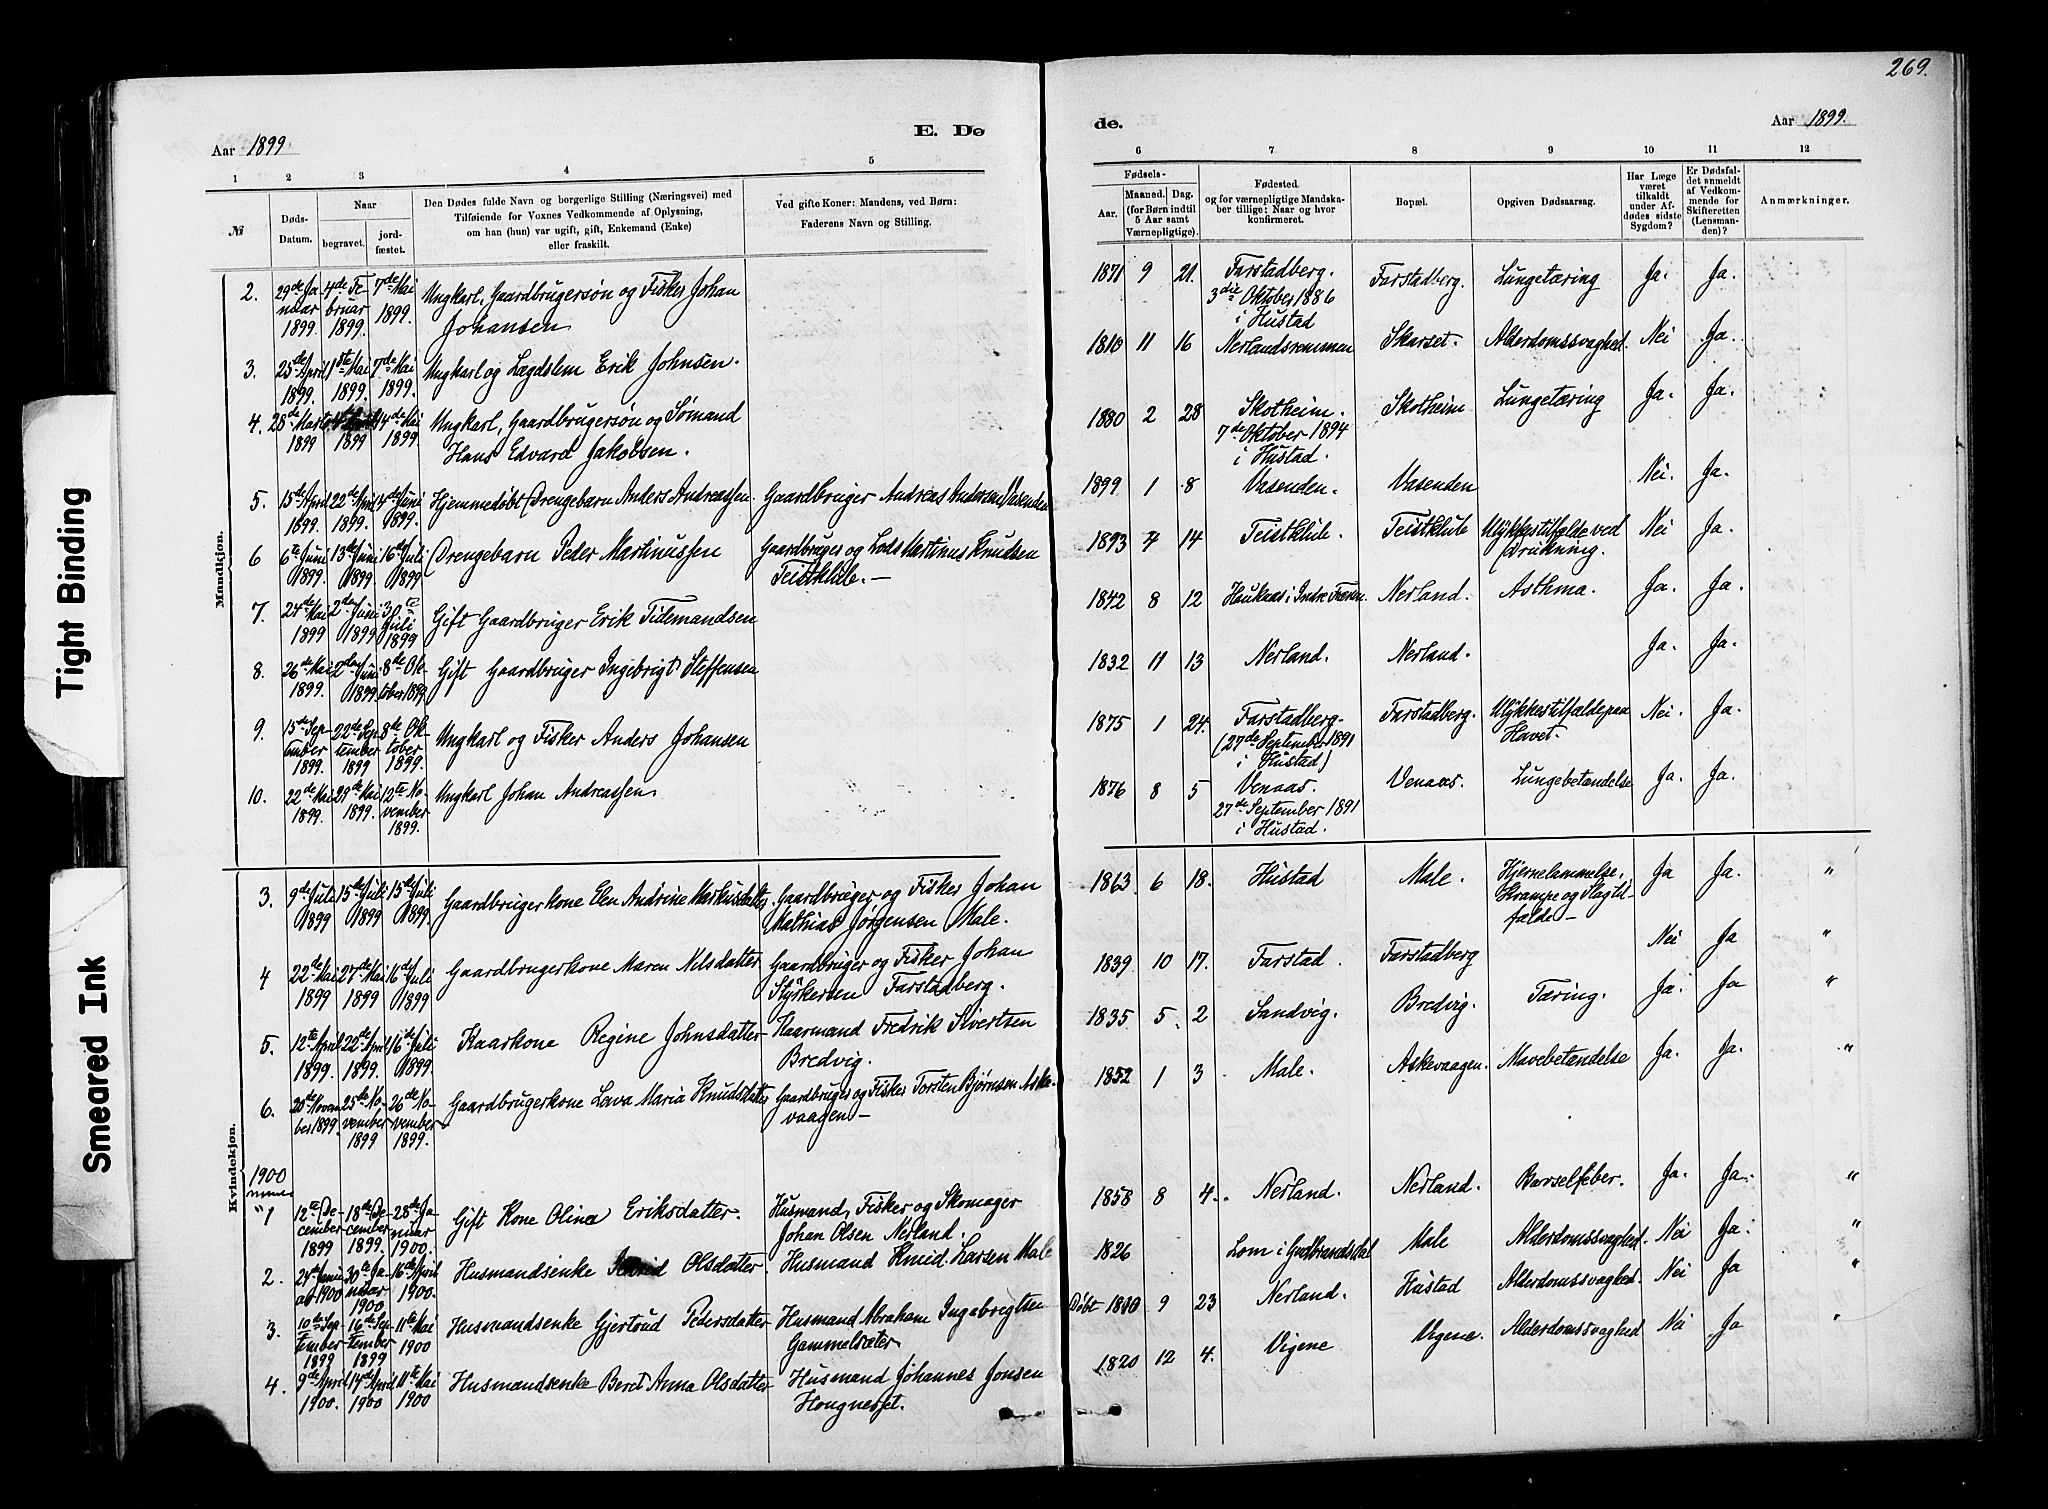 269.
Aar 1899
E. Dø
de.
Aar 1899.
1 2 3 4 5
6 7 8 9 10 11 12
№
Døds-
Datum.
Naar
begravet.
jord-
fæstet.
Den Dødes fulde Navn og borgerlige Stilling (Næringsvei) med
Tilføiende for Voxnes Vedkommende af Oplysning,
om han (hun) var ugift, gift, Enkemand (Enke)
eller fraskilt.
Ved gifte Koner: Mandens, ved Børn:
Faderens Navn og Stilling.
Fødsels-
Aar.
Maaned. Dag.
(for Børn indtil
5 Aar samt
Værnepligtige).
Fødested.
og for værnepligtige Mandska-
ber tillige: Naar og hvor
konfirmeret.
Bopæl.
Opgiven Dødsaarsag.
Har Læge
været
tilkaldt
under Af-
dødes sidste
Sygdom?
Er Dødsfal-
det anmeldt
af Vedkom-
mende for
Skifteretten
(Lensman-
den)?
Anmærkninger.
Mandkjøn.
2. 29de Ja 4de Fe 7de Mai Ungkarl, Gaardbrugersøn og Fisker Johan
nuar bruar 1899. Johansen
1899. 1899.
1871 9 21. Farstadberg. Farstadberg. Lungetæring Ja. Ja.
3die Oktober 1886
i Hustad
3. 25de April 1ste Mai 7de Mai Ungkarl og Lægdslem Erik Johnsen.
1899. 1899. 1899.
1810 11 16 Nerlandsremmen Skarset. Alderdomssvaghed. Nei Ja.
4. 28de Marts 14de Mai Ungkarl, Gaardbrugersøn og Sømand
1899 1899 1899 Hans Edvard Jakobsen.
1880 2 28 Skotheim. Skotheim Lungetæring Ja. Ja.
7de Oktober 1894
i Hustad.
5. 15de April 22de April 4de Juni Hjemmedøbt Drengebarn Anders Andreassen Gaardbruger Andreas Andersen Vasenden
1899. 1899. 1899.
1899 1 8 Vasenden. Vasenden Nei. Ja.
6 6te Juni 13de Juni 16de Juli Drengebarn Peder Martinussen Gaardbruger og Lods Martinus Knudsen
1899. 1899. 1899 Teistklub.—
1893 4 14 Teistklub. Teistklub Ulykkestilfælde ved Nei Ja.
Drukning.
7. 24de Mai 2den Juni 3die Juli Gift Gaardbruger Erik Tidemandsen
1899 1899 1899
1842 8 12 Haukaas i Indre Frænen. Nerland. Asthma. Ja. Ja.
8. 26de Mai 2den Juni 8de Ok- Gift Gaardbruger Ingebrigt Steffensen
1899. 1899 tober 1899
1832 11 13 Nerland. Nerland. Ja. Ja.
9. 15de Sep- 22de Sep- 8de Ok- Ungkarl og Fisker Anders Johansen
tember tember tober
1899. 1899 1899.
1875 1 24. Farstadberg- Farstadberg. Ulykkestilfælde paa Nei. Ja.
(27de September 1891 Havet.
i Hustad)
10. 22de Mai 29de Mai 12te No- Ungkarl Johan Andreassen.
1899. 1899. vember
1899.
1876 8 5 Venaas. Venaas. Lungebetændelse Ja. Ja.
27de September 1891
i Hustad.
Kvindekjøn.
3. 9de Juli 15de Juli 15de Juli Gaardbrugerkone Elen Andrine Markusdatter Gaardbruger og Fisker Johan
1899 1899 1899. Mathias Jørgensen Male.
1863 6 18. Hustad Male. Hjernelammelse, Ja Ja. "
Krampe og Slagtil-
fælde—
4 22de Mai 27de Mai 16de Juli Gaardbrugerkone Maren Nilsdatter Gaardbruger og Fisker Johan
1899 1899 1899 Styrkersen Farstadberg.
1839 10 17. Farstad. Farstadberg Nei Ja "
5. 12te April 22de April 16de Juli Kaarkone Regine Johnsdatter Kaarmand Fredrik Sivertsen
1899. 1899. 1899. Bredvig.
1835 5. 2 Sandvig. Bredvig. Tæring. Ja. Ja "
6. 20de Novem 25de No- 26de No- Gaardbrugerkone Lava Maria Knudsdatter Gaardbruger og Fisker Torsten Bjørnsen Aske-
ber 1899. vember vember vaagen—
1899 1899.
1852 1 3 Male. Askevaagen. Mavebetændelse Ja. Ja. "
1900
" 1 12te De- 18de De- 28de Ja- Gift Kone Olina Eriksdatter. Husmand, Fisker og Skomager
cember cember nuar Johan Olsen Nerland.
1899 1899. 1900.
1858 8 4. Nerland. Nerland. Barselfeber. Ja. Ja. "
2. 24de Janu 30te Ja- 16de April Husmandsenke Olsdatter. Husmand Knud Larsen Male
ar 1900 nuar 1900.
1900
1826 Lom i Gudbrandsdal Male Alderdomssvaghed. Nei Ja. "
3. 10de Sep- 16de Sep- 11te Mai Husmandsenke Gjertrud Pedersdatter Husmand Abraham Ingebregtsen
tember tember 1900 Gammelsæter
1899 1899
Døbt 1810 9 23 Nerland. Hustad Alderdomssvaghed. Nei Ja "
4. 9de April 14de April 11te Mai Husmandsenke Beret Anna Olsdatter Husmand Johannes Jonsen
1900. 1900 1900 Hougnesset.
1820 12 4. Vigene Vigene. Alderdomssvaghed Nei Ja "
Tight Binding
Smeared Ink